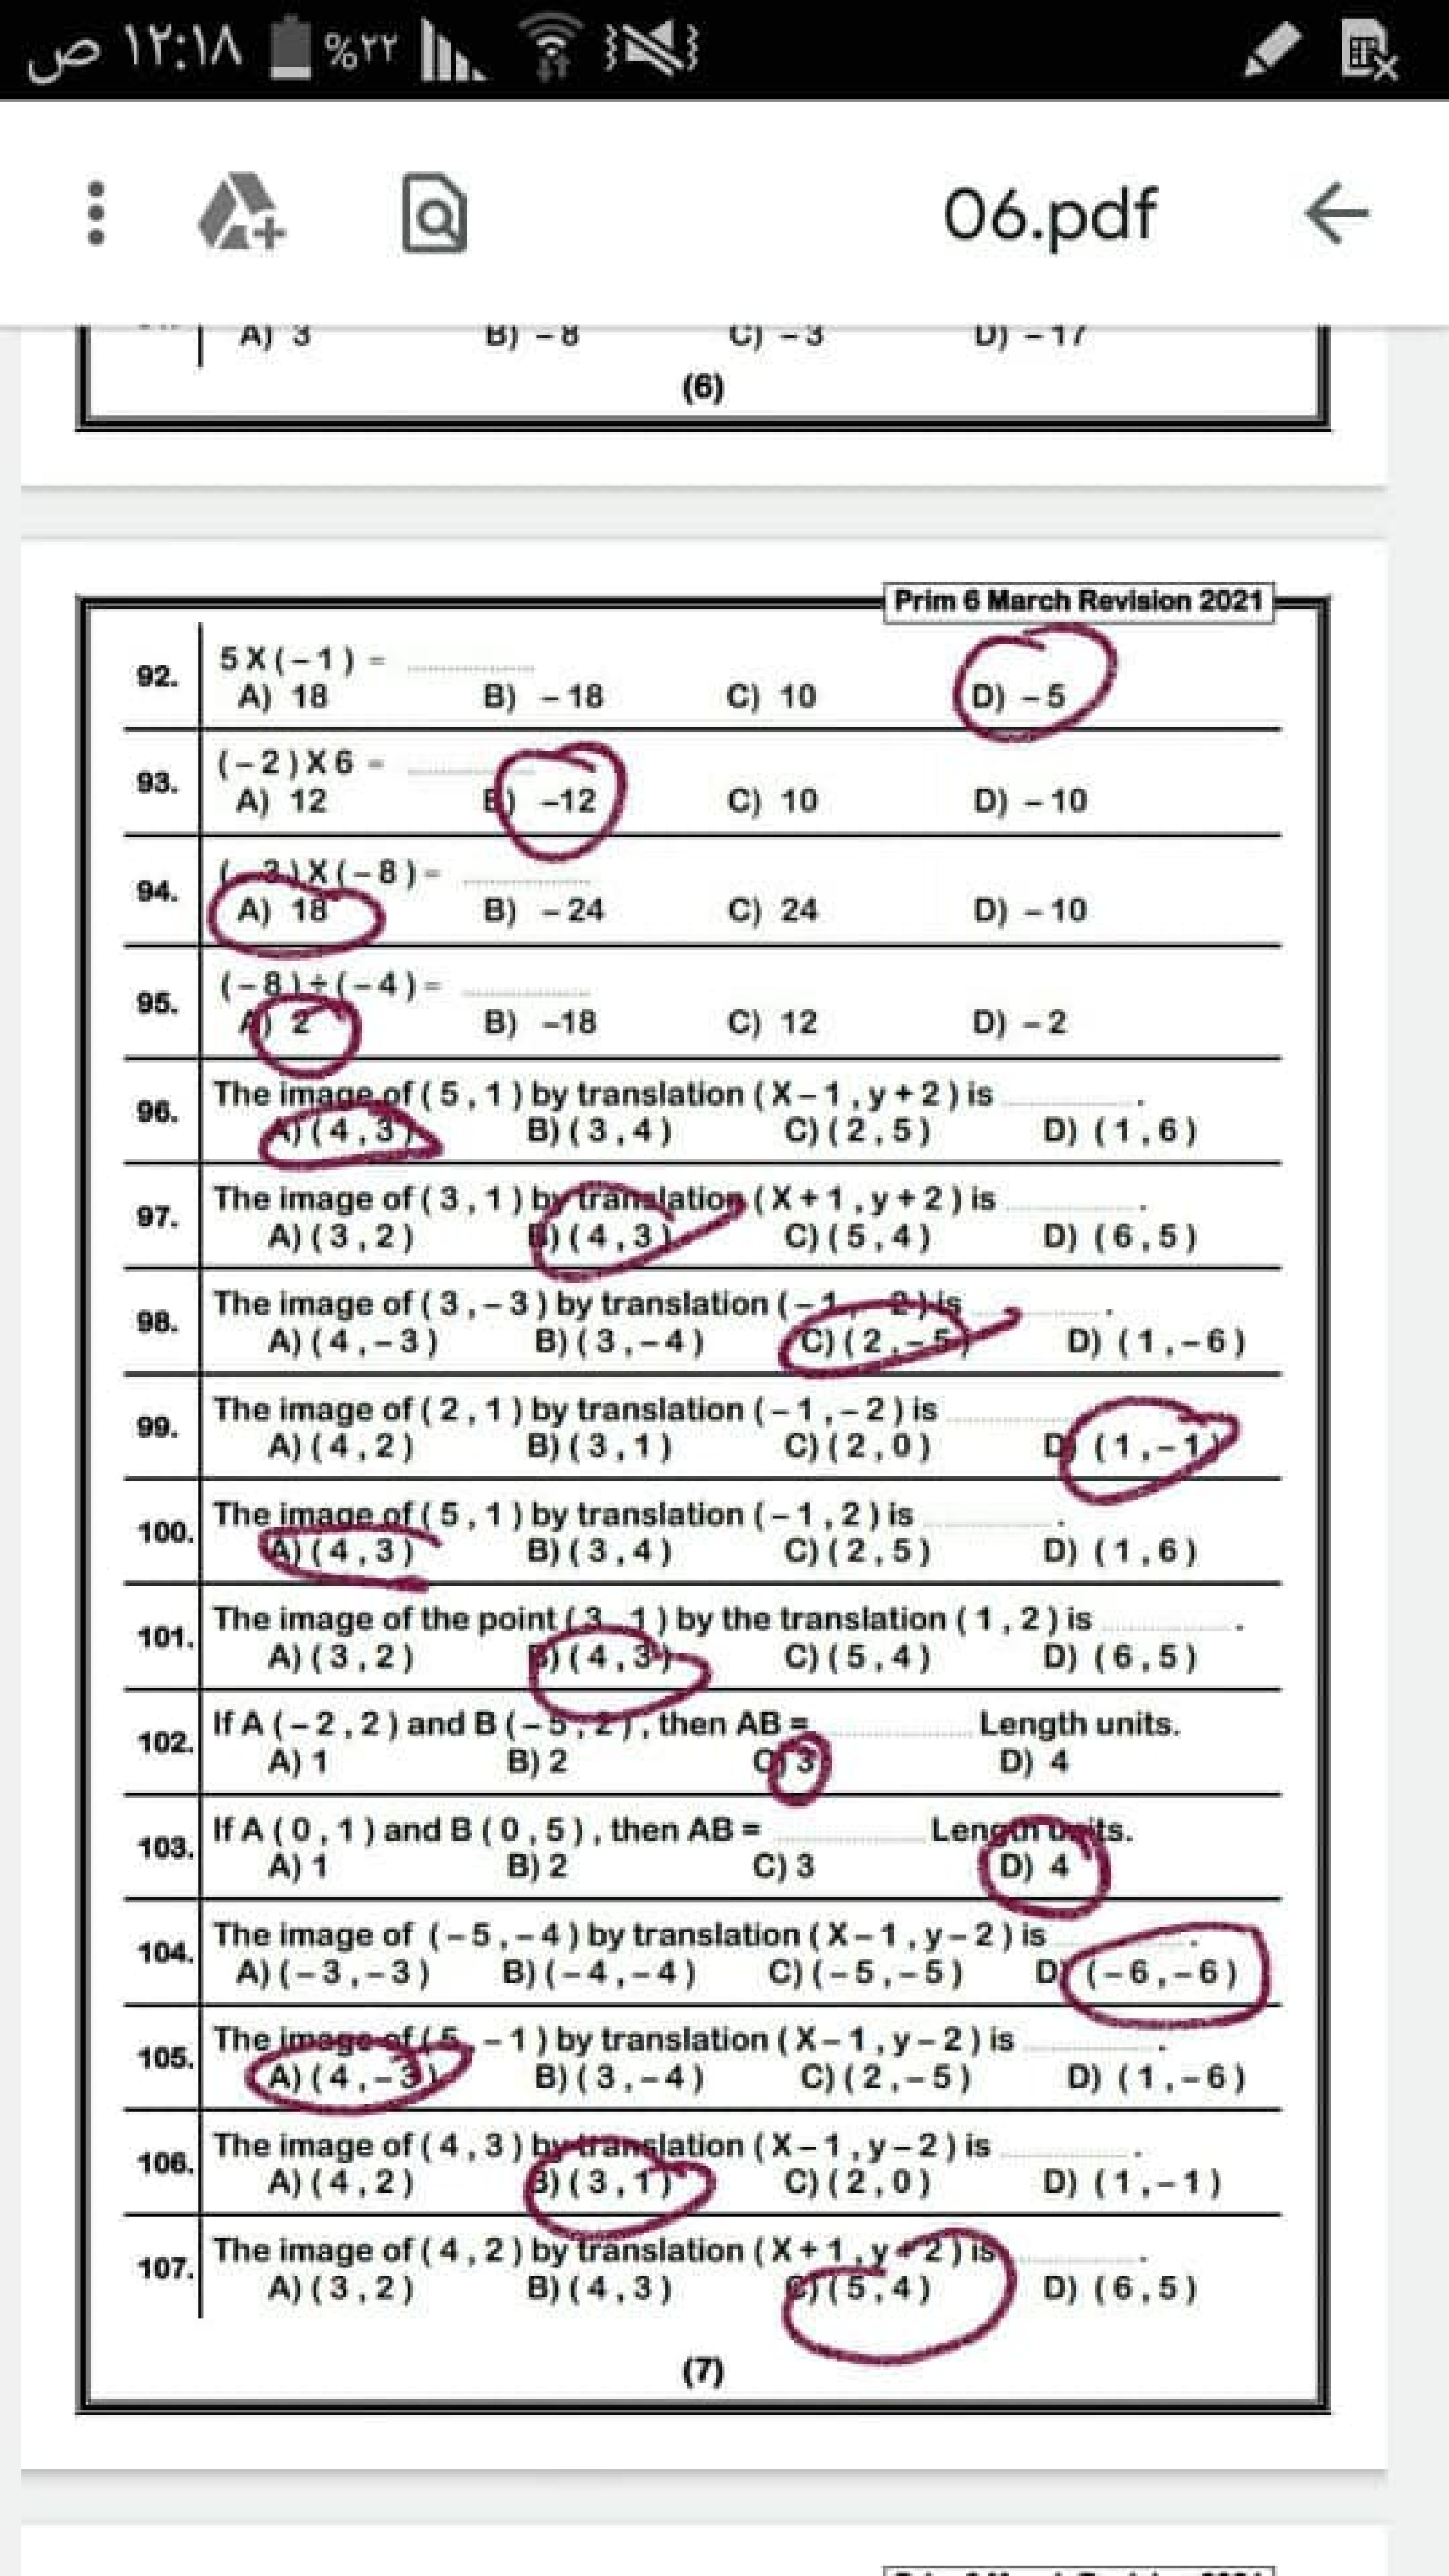 ص ١٢:١٨ %٢٢
06.pdf
A) 3 B) - 8 C) - 3 D) - 17
(6)
Prim 6 March Revision 2021
92. 5 X ( - 1 ) = ..........
A) 18 B) - 18 C) 10 D) - 5
93. ( - 2 ) X 6 = ..........
A) 12 B) -12 C) 10 D) - 10
94. ( - 3 ) X ( - 8 ) = ..........
A) 18 B) - 24 C) 24 D) - 10
95. ( - 8 ) ÷ ( - 4 ) = ..........
A) 2 B) -18 C) 12 D) - 2
96. The image of ( 5 , 1 ) by translation ( X - 1 , y + 2 ) is .......... .
A) ( 4 , 3 ) B) ( 3 , 4 ) C) ( 2 , 5 ) D) ( 1 , 6 )
97. The image of ( 3 , 1 ) by translation ( X + 1 , y + 2 ) is .......... .
A) ( 3 , 2 ) B) ( 4 , 3 ) C) ( 5 , 4 ) D) ( 6 , 5 )
98. The image of ( 3 , - 3 ) by translation ( - 1 , - 2 ) is .......... .
A) ( 4 , - 3 ) B) ( 3 , - 4 ) C) ( 2 , - 5 ) D) ( 1 , - 6 )
99. The image of ( 2 , 1 ) by translation ( - 1 , - 2 ) is ..........
A) ( 4 , 2 ) B) ( 3 , 1 ) C) ( 2 , 0 ) D) ( 1 , - 1 )
100. The image of ( 5 , 1 ) by translation ( - 1 , 2 ) is .......... .
A) ( 4 , 3 ) B) ( 3 , 4 ) C) ( 2 , 5 ) D) ( 1 , 6 )
101. The image of the point ( 3 , 1 ) by the translation ( 1 , 2 ) is .......... .
A) ( 3 , 2 ) B) ( 4 , 3 ) C) ( 5 , 4 ) D) ( 6 , 5 )
102. If A ( - 2 , 2 ) and B ( - 5 , 2 ) , then AB = .......... Length units.
A) 1 B) 2 C) 3 D) 4
103. If A ( 0 , 1 ) and B ( 0 , 5 ) , then AB = .......... Length units.
A) 1 B) 2 C) 3 D) 4
104. The image of ( - 5 , - 4 ) by translation ( X - 1 , y - 2 ) is .......... .
A) ( - 3 , - 3 ) B) ( - 4 , - 4 ) C) ( - 5 , - 5 ) D) ( - 6 , - 6 )
105. The image of ( 5 , - 1 ) by translation ( X - 1 , y - 2 ) is .......... .
A) ( 4 , - 3 ) B) ( 3 , - 4 ) C) ( 2 , - 5 ) D) ( 1 , - 6 )
106. The image of ( 4 , 3 ) by translation ( X - 1 , y - 2 ) is .......... .
A) ( 4 , 2 ) B) ( 3 , 1 ) C) ( 2 , 0 ) D) ( 1 , - 1 )
107. The image of ( 4 , 2 ) by translation ( X + 1 , y + 2 ) is .......... .
A) ( 3 , 2 ) B) ( 4 , 3 ) C) ( 5 , 4 ) D) ( 6 , 5 )
(7)